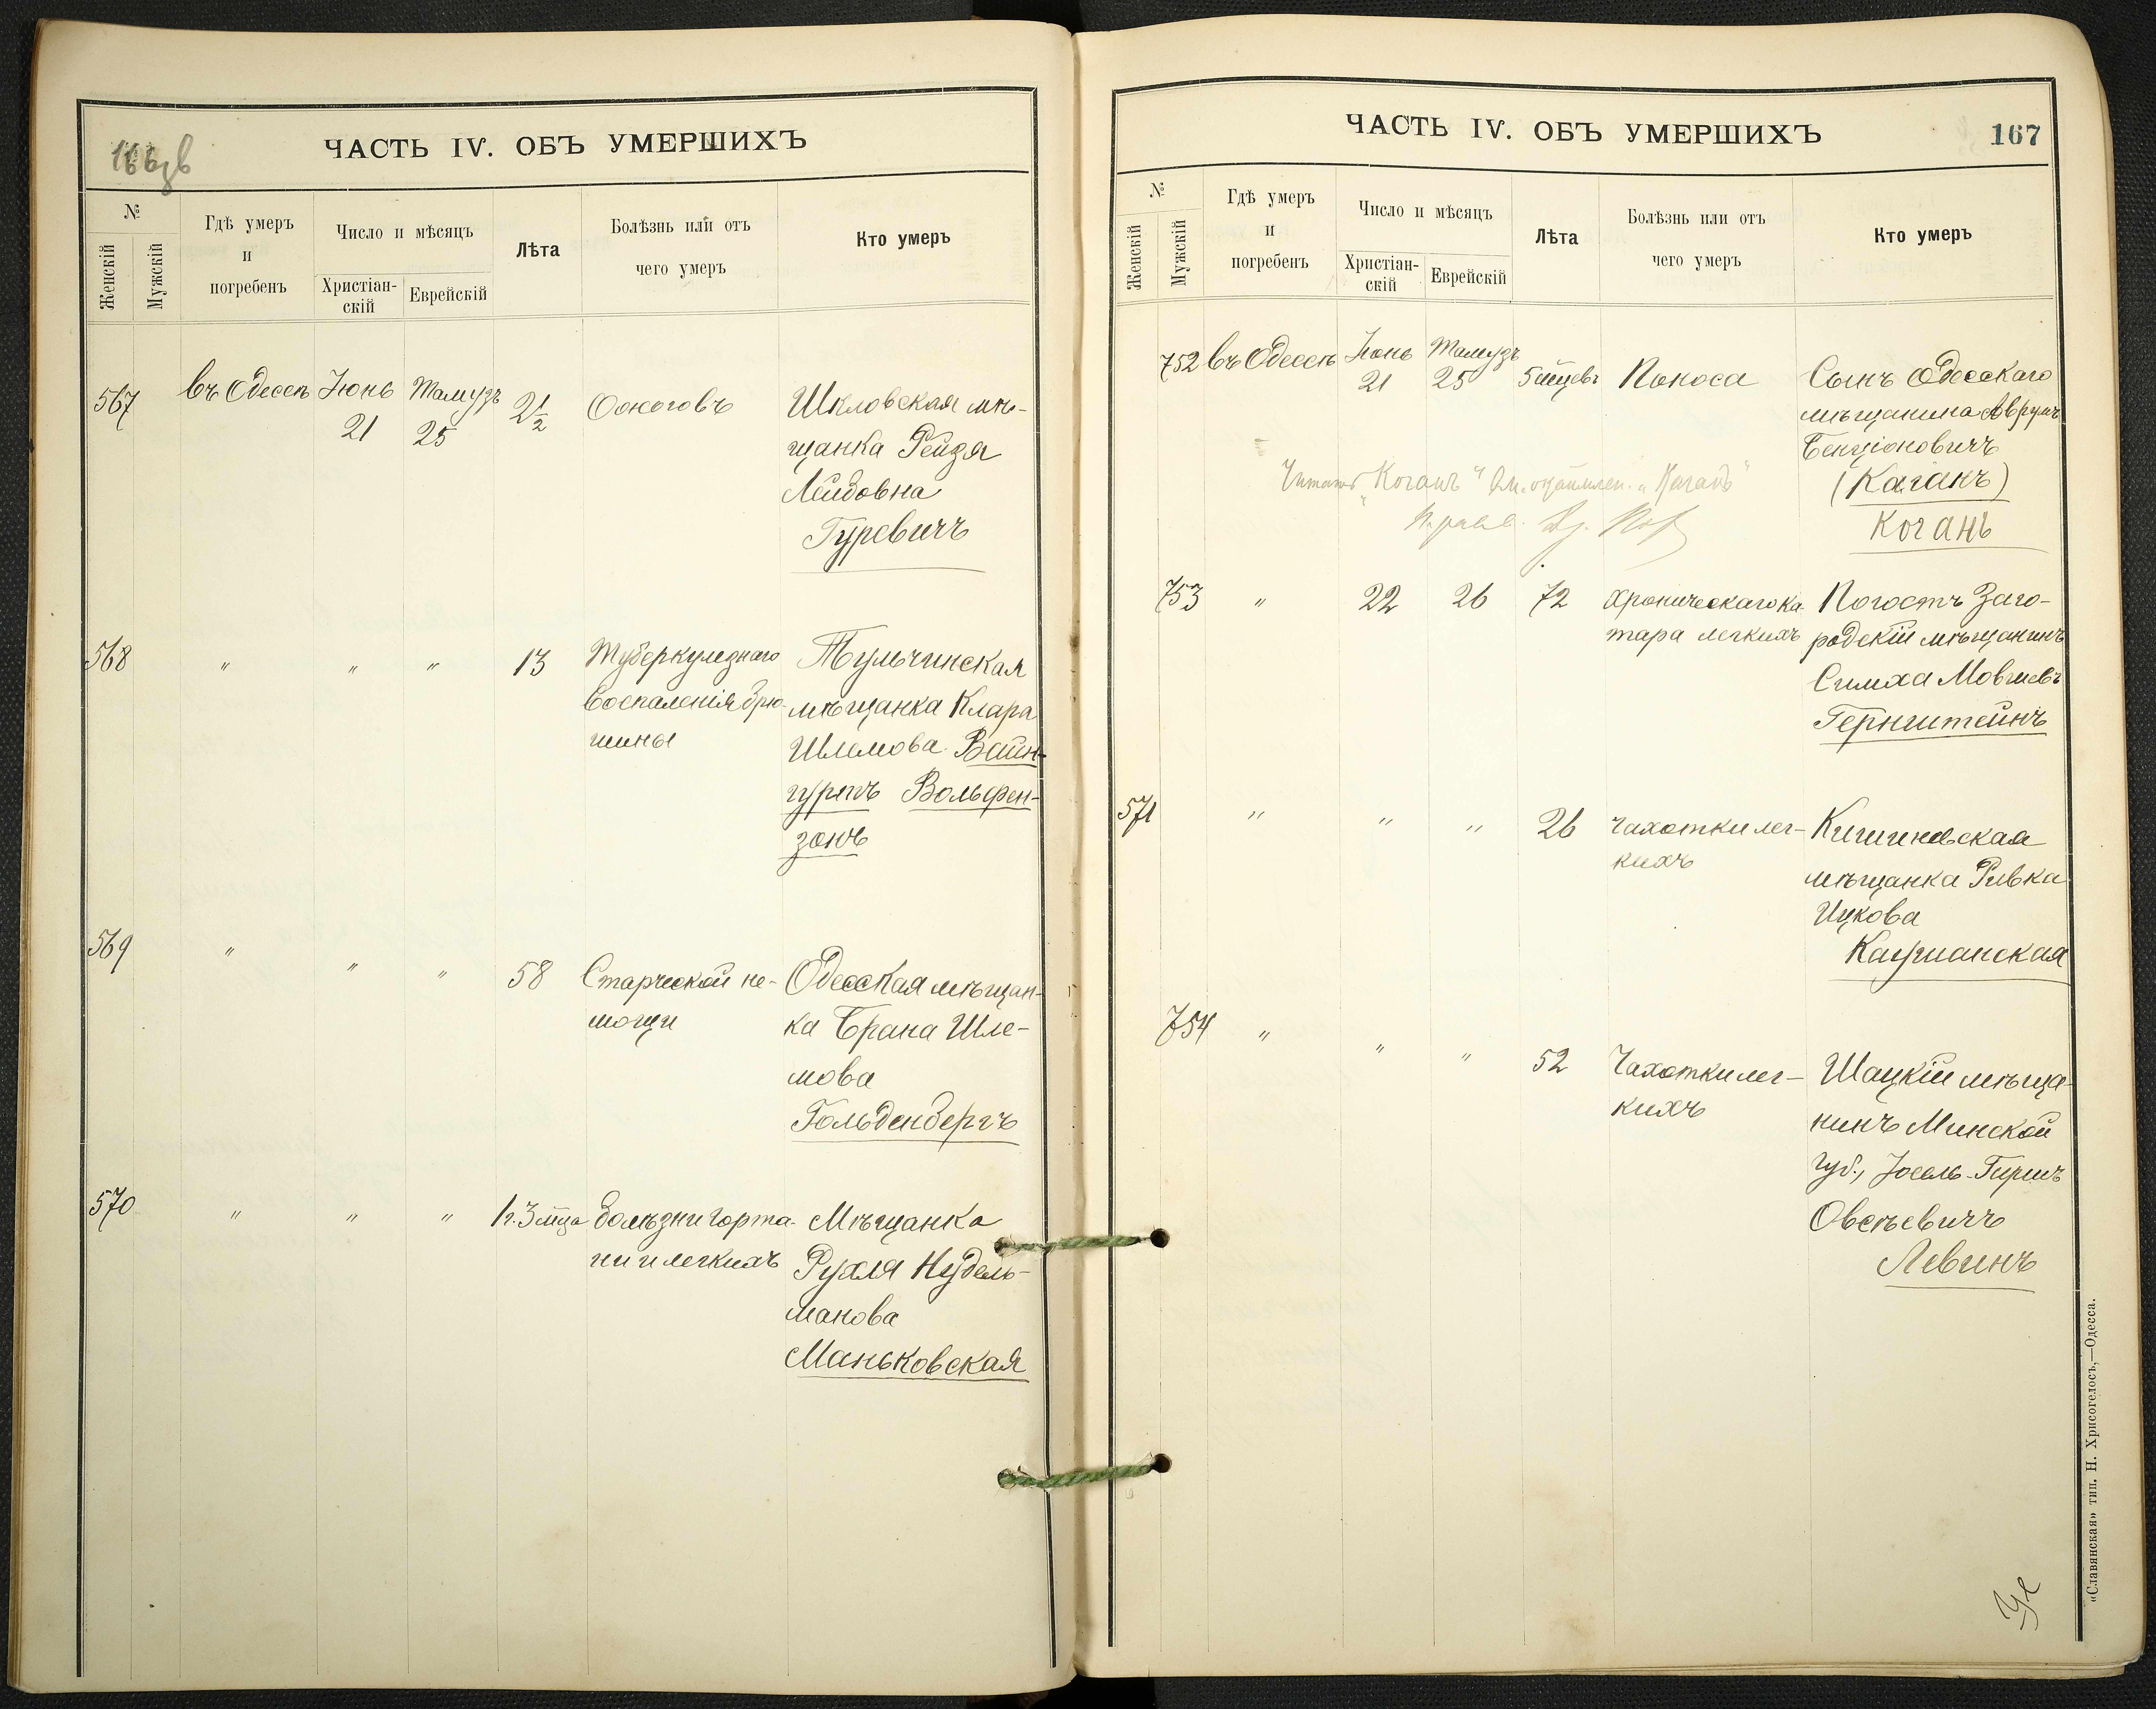 166зв
ЧАСТЬ IV. ОБЪ УМЕРШИХЪ
№
Женскій
Мужскій
Гдѣ умеръ
и
погребенъ
Число и мѣсяцъ
Христіан-
скій
Еврейскій
Лѣта
Болѣзнь или отъ
чего умеръ
Кто умеръ
567 въ Одессѣ Іюнь 21 Тамузъ 25 2½ Ожоговъ Шкловская мѣ-
щанка Рейзя
Лейбовна
Гуревичъ
568 " " " 13 Туберкулезнаго Тульчинская
воспаленія брю- мѣщанка Клара
шины Шлемова Вайн-
гуртъ Вольфен-
зонъ
569 " " " 58 Старческой не- Одесская мѣщан-
мощи ка Брана Шле-
мова
Гольденбергъ
570 " " " 1г. 3 м-ца Болѣзни горта- Мѣщанка
ни и легкихъ Рухля Нудель-
манова
Маньковская
ЧАСТЬ IV. ОБЪ УМЕРШИХЪ
167
№
Женскій
Мужскій
Гдѣ умеръ
и
погребенъ
Число и мѣсяцъ
Христіан-
скій
Еврейскій
Лѣта
Болѣзнь или отъ
чего умеръ
Кто умеръ
752 въ Одессѣ Іюнь 21 Тамузъ 25 5 мѣцевъ Поноса Сынъ Одесскаго
мѣщанина Аврумъ
Бенціоновичъ
(Каганъ)
Коганъ
Читать "Коганъ"
753 " 22 26 72 Хроническаго ка- Погостъ Заго-
тара легкихъ родскій мѣщанинъ
Симха Мовшевъ
Гернштейнъ
571 " " " 26 Чахотки лег- Кишиневская
кихъ мѣщанка Ривка
Ицкова
Каушанская
754 " " " 52 Чахотки лег- Шацкій мѣща-
кихъ нинъ Минской
губ., Іосель-Гиршъ
Овсѣевичъ
Левинъ
«Славянская» тип. Н. Хрисогелосъ,—Одесса.